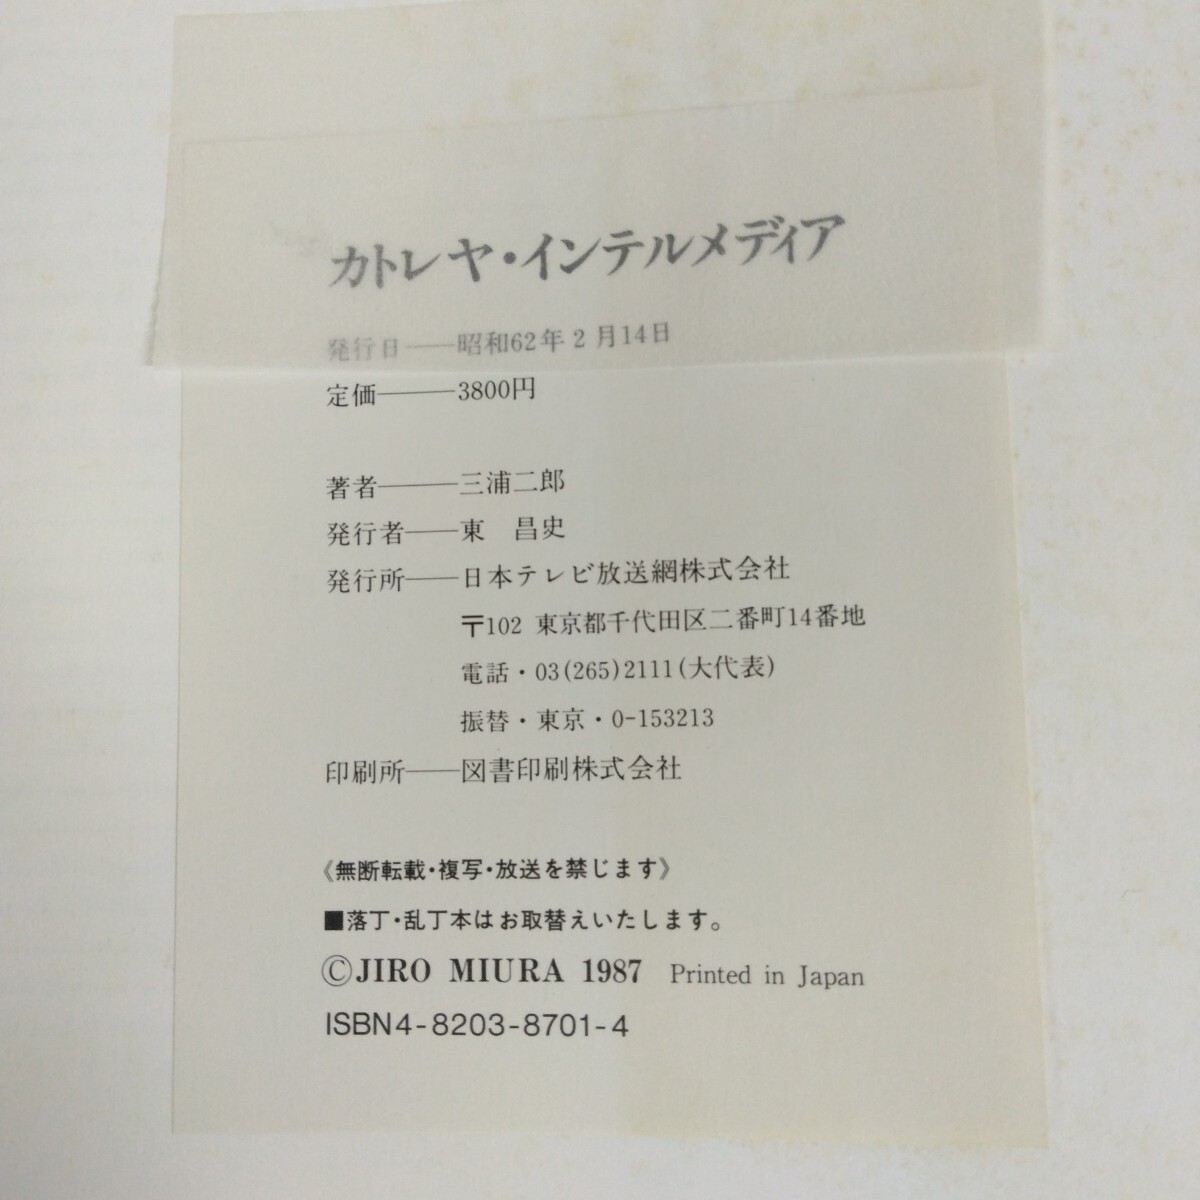 カトレヤ・インテルメディア
発行日――昭和62年2月14日
定価―――3800円
著者―――三浦二郎
発行者――東 昌史
発行所――日本テレビ放送網株式会社
〒102 東京都千代田区二番町14番地
電話・03(265)2111(大代表)
振替・東京・0-153213
印刷所――図書印刷株式会社
《無断転載・複写・放送を禁じます》
■落丁・乱丁本はお取替えいたします。
©JIRO MIURA 1987 Printed in Japan
ISBN4-8203-8701-4